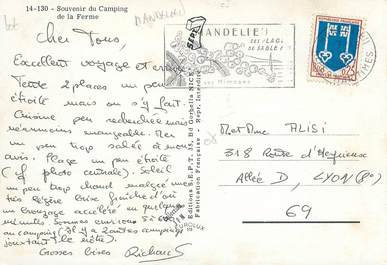 14-130 - Souvenir du Camping
de la Ferme
MANDELIEU
Cher Tous,
Excellent voyage et
Tente 2 places un peu
étroite mais on s'y fait.
Cuisine peu recherchée mais
néanmoins mangeable. Mer
un peu trop salée à mon
avis. Plage un peu étroite
(cf photo centrale). Soleil
un peu trop chaud malgré une
très légère brise fraîche d'où
un bronzage accéléré en quelques
minutes. Sommes environ
au camping (Il y a 2 autres campings
jouxtant le nôtre).
Grosses bises Richard
MANDELIEU
SES PLAGES
DE SABLE
Ses Mimosas
Editions S.E.P.T. 15, Bd Gorbella NICE
Fabrication Française - Repr. Interdite
EUROLUX
Mr et Mme ALISI
318 Route d'
Allée D, LYON
69